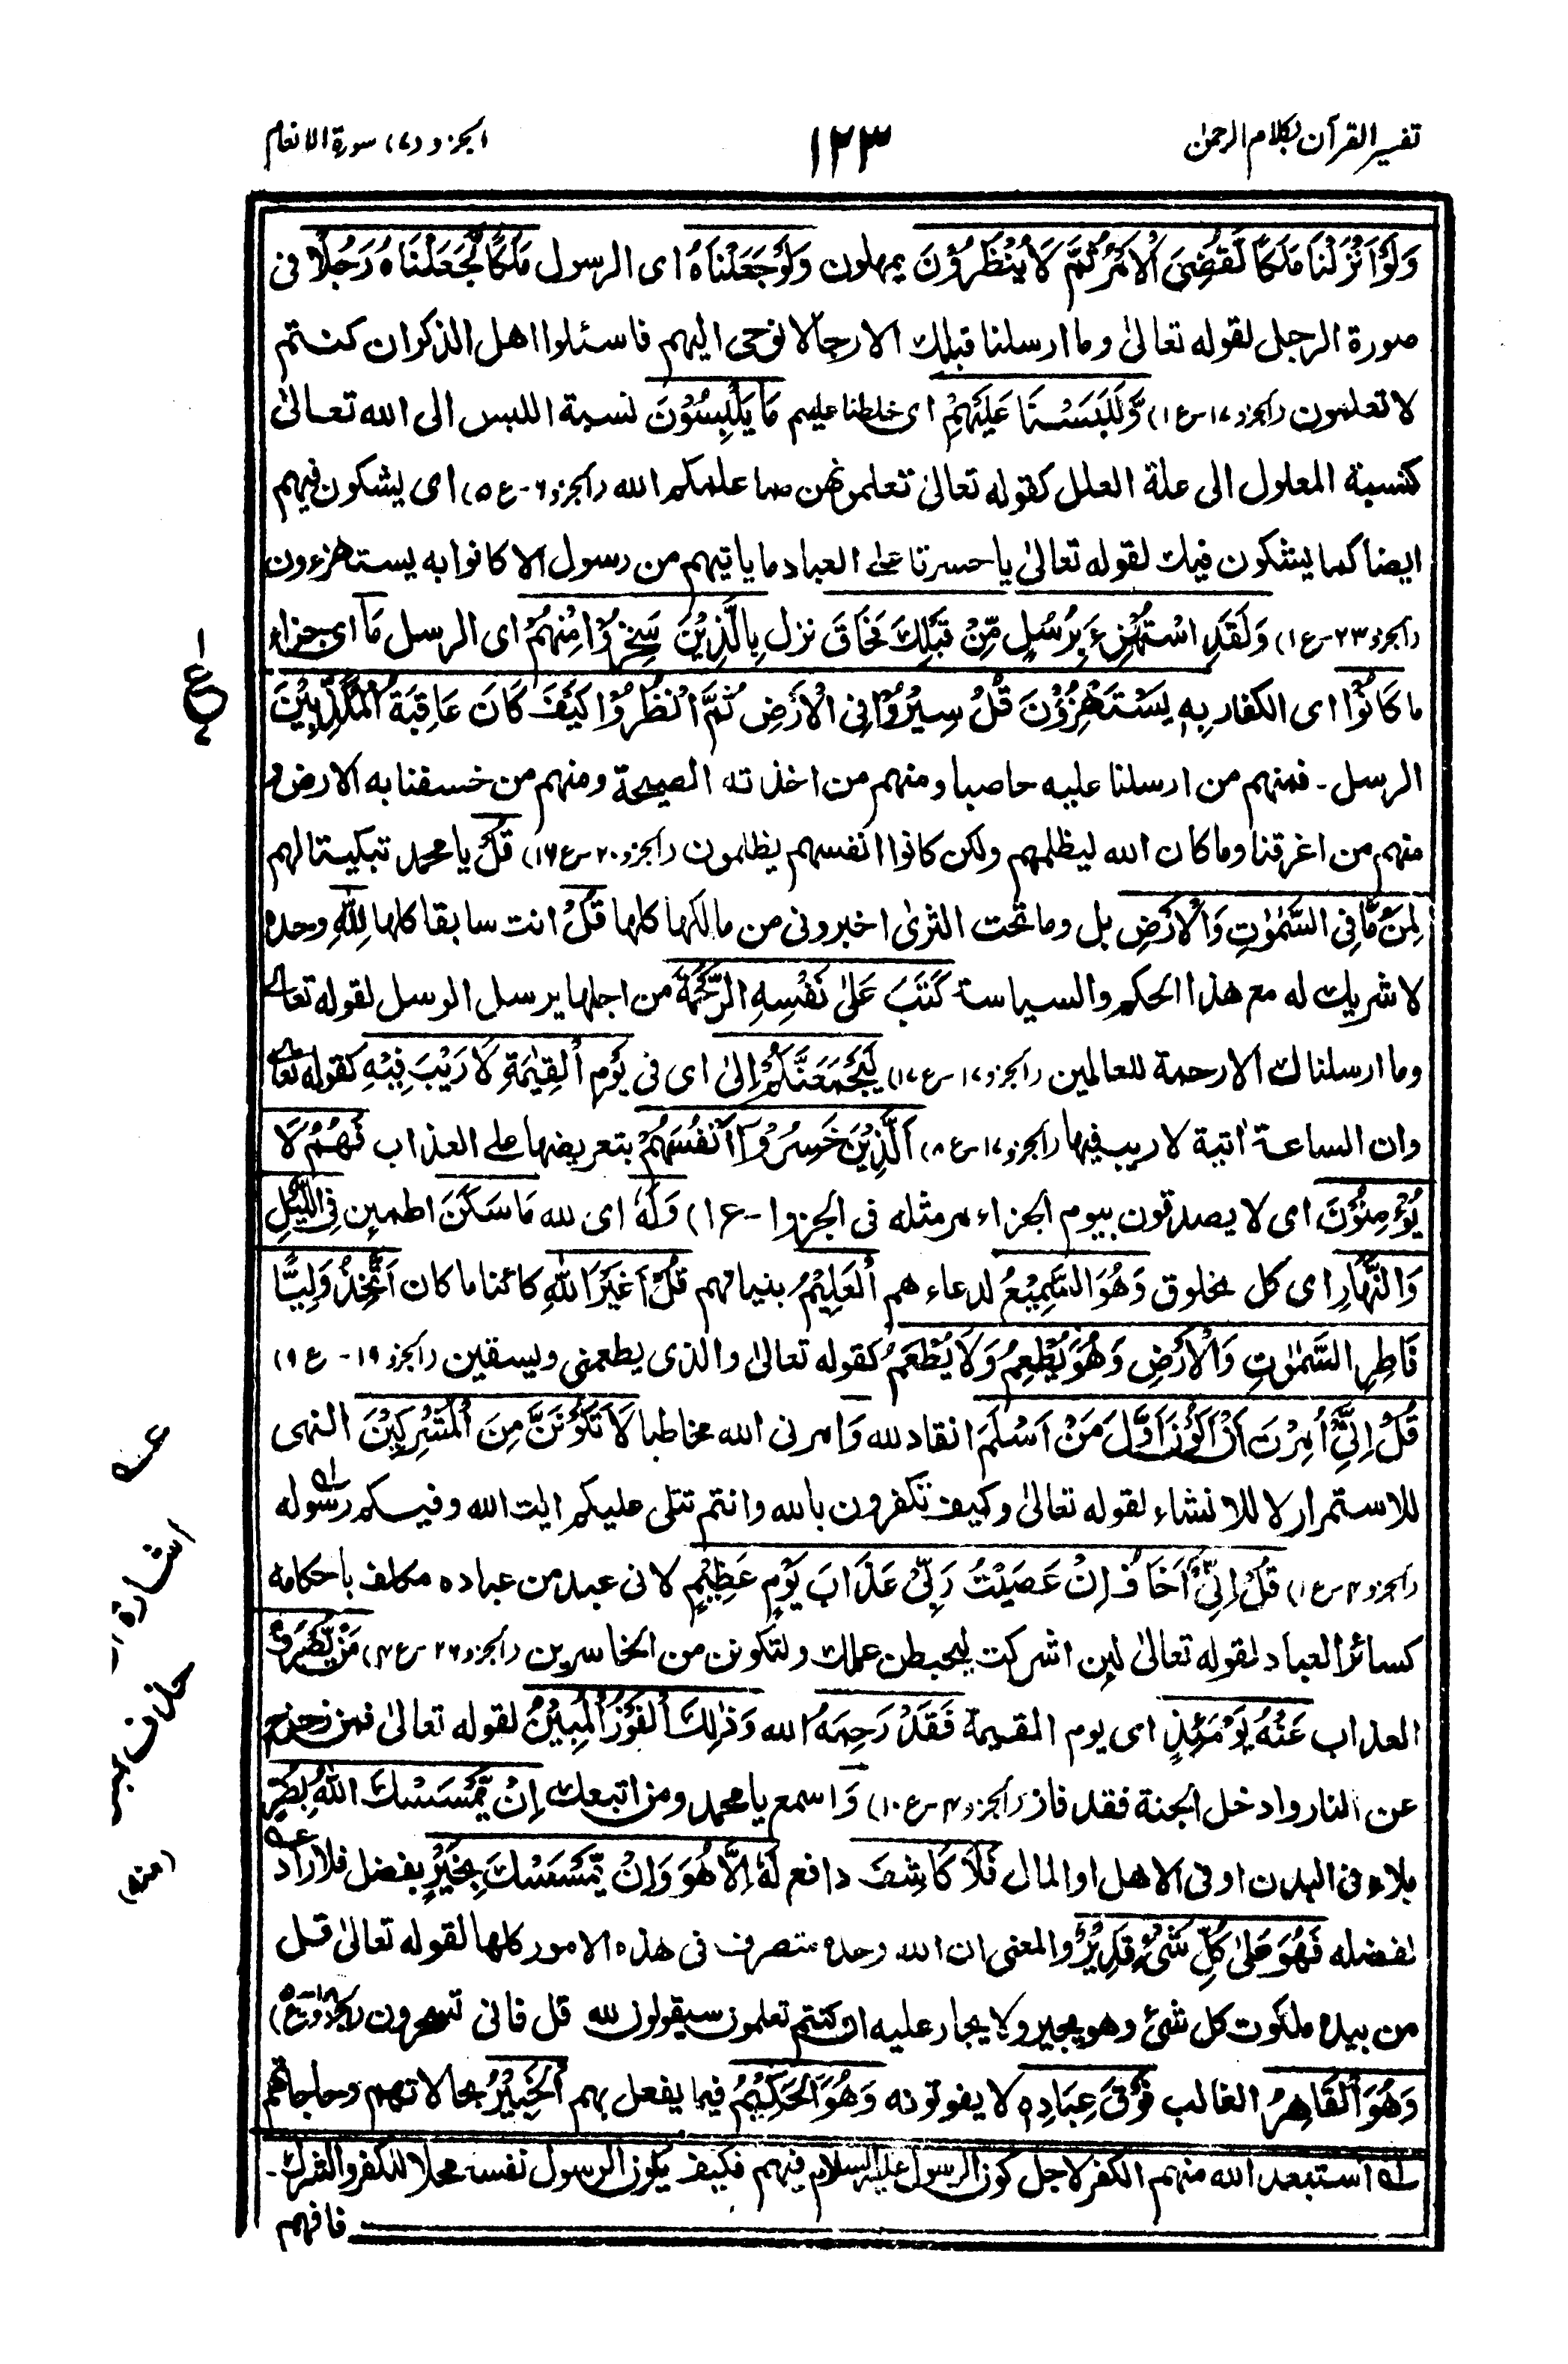 تفسير القرآن بكلام الرحمن
١٢٣
الجزو (٧) سورة الانعام
وَلَوْ اَنْزَلْنَا مَلَكًا لَّقُضِىَ الْاَمْرُ ثُمَّ لَا يُنْظَرُوْنَ يمهلون وَلَوْ جَعَلْنَاهُ اى الرسول مَلَكًا لَّجَعَلْنَاهُ رَجُلًا فى
صورة الرجل لقوله تعالىٰ وما ارسلنا قبلك الا رجالا نوحى اليهم فاسئلوا اهل الذكر ان كنتم
لا تعلمون (الجزو ١٧-ع ١) وَّلَلَبَسْنَا عَلَيْهِمْ اى خلطنا عليهم مَا يَلْبِسُوْنَ نسبة اللبس الى الله تعالىٰ
كنسبة المعلول الى علة العلل كقوله تعالىٰ تعلمونهن مما علمكم الله (الجزو ٦-ع ٥) اى يشكون فيهم
ايضا كما يشكون فيك لقوله تعالىٰ يا حسرتا على العباد ما ياتيهم من رسول الا كانوا به يستهزءون
(الجزو ٢٣-ع ١) وَلَقَدِ اسْتُهْزِءَ بِرُسُلٍ مِّنْ قَبْلِكَ فَحَاقَ نزل بِالَّذِيْنَ سَخِرُوْا مِنْهُمْ اى الرسل مَا اى جزاء
ما كَانُوْا اى الكفار بِهٖ يَسْتَهْزِؤُنَ قُلْ سِيْرُوْا فِى الْاَرْضِ ثُمَّ انْظُرُوْا كَيْفَ كَانَ عَاقِبَةُ الْمُكَذِّبِيْنَ
الرسل ۔ فمنهم من ارسلنا عليه حاصبا ومنهم من اخذته الصيحة ومنهم من خسفنا به الارض و
منهم من اغرقنا وما كان الله ليظلمهم ولكن كانوا انفسهم يظلمون (الجزو ٢٠-ع ١٦) قُلْ يا محمد تبكيتا لهم
لِمَنْ مَّا فِى السَّمٰوٰتِ وَالْاَرْضِ بل وما تحت الثرىٰ اخبرونى من مالكها كلها قُلْ انت سابقا كلها لِلّٰهِ وحده
لا شريك له مع هذا الحكم والسياسة كَتَبَ عَلىٰ نَفْسِهِ الرَّحْمَةَ من اجلها يرسل الرسل لقوله تعالىٰ
وما ارسلناك الا رحمة للعالمين (الجزو ١٧-ع ١٧) لَيَجْمَعَنَّكُمْ اِلىٰ اى فى يَوْمِ الْقِيٰمَةِ لَا رَيْبَ فِيْهِ كقوله تعالىٰ
وان الساعة اتية لا ريب فيها (الجزو ١٧-ع ٨) اَلَّذِيْنَ خَسِرُوْا اَنْفُسَهُمْ بتعريضها على العذاب فَهُمْ لَا
يُؤْمِنُوْنَ اى لا يصدقون بيوم الجزاء مر مثله فى الجزو ١-ع ١) وَلَهٗ اى لله مَا سَكَنَ اطمين فِى اللَّيْلِ
وَالنَّهَارِ اى كل مخلوق وَهُوَ السَّمِيْعُ لدعاءهم الْعَلِيْمُ بنياتهم قُلْ اَغَيْرَ اللّٰهِ كائنا ما كان اَتَّخِذُ وَلِيًّا
فَاطِرِ السَّمٰوٰتِ وَالْاَرْضِ وَهُوَ يُطْعِمُ وَلَا يُطْعَمُ كقوله تعالىٰ والذى يطعمنى ويسقين (الجزو ١٩-ع ٩)
قُلْ اِنِّىْ اُمِرْتُ اَنْ اَكُوْنَ اَوَّلَ مَنْ اَسْلَمَ انقاد لله وَ امرنى الله مخاطبا لَا تَكُوْنَنَّ مِنَ الْمُشْرِكِيْنَ النهى
للاستمرار لا للانشاء لقوله تعالىٰ وكيف تكفرون بالله وانتم تتلى عليكم ايٰت الله وفيكم رسوله
(الجزو ٤-ع ١) قُلْ اِنِّىْ اَخَافُ اِنْ عَصَيْتُ رَبِّىْ عَذَابَ يَوْمٍ عَظِيْمٍ لانى عبد من عباده مكلف باحكامه
كسائر العباد لقوله تعالىٰ لين اشركت ليحبطن عملك ولتكونن من الخاسرين (الجزو ٢٤-ع ٤) مَنْ يُّصْرَفْ
العذاب عَنْهُ يَوْمَئِذٍ اى يوم القيمة فَقَدْ رَحِمَهُ الله وَذٰلِكَ الْفَوْزُ الْمُبِيْنُ لقوله تعالىٰ فمن زحزح
عن النار وادخل الجنة فقد فاز (الجزو ٤-ع ١٠) وَ اسمع يا محمد ومن اتبعك اِنْ يَّمْسَسْكَ اللّٰهُ بِضُرٍّ
بلاء فى البدن او فى الاهل او المال فَلَا كَاشِفَ دافع لَهٗ اِلَّا هُوَ وَاِنْ يَّمْسَسْكَ بِخَيْرٍ بفضل فلا راد
لفضله فَهُوَ عَلىٰ كُلِّ شَىْءٍ قَدِيْرٌ والمعنى ان الله وحده متصرف فى هذه الامور كلها لقوله تعالىٰ قل
من بيده ملكوت كل شئ وهو يجير ولا يجار عليه ان كنتم تعلمون سيقولون لله قل فانى تسحرون
وَهُوَ الْقَاهِرُ الغالب فَوْقَ عِبَادِهٖ لا يفوتونه وَهُوَ الْحَكِيْمُ فيما يفعل بهم الْخَبِيْرُ بحالاتهم وحاجاتهم
له استبعد الله منهم الكفر لاجل كون الرسول عليه السلام فيهم فكيف يكون الرسول نفسه محلا للكفر والشرك ۔
فافهم
ع
عه
اشارة
حذف
(منه)